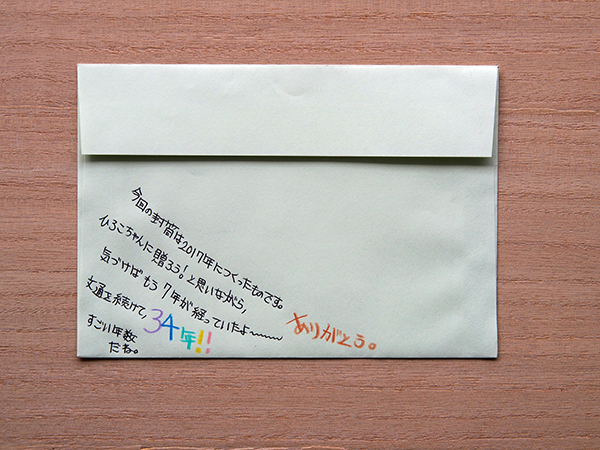 今回の封筒は2017年につくったものです。
ひろこちゃんに贈ろう!と思いながら,
気づけばもう7年が経っていたよ〜〜〜
文通を続けて,34年!!
すごい年数
だね。
ありがとう。